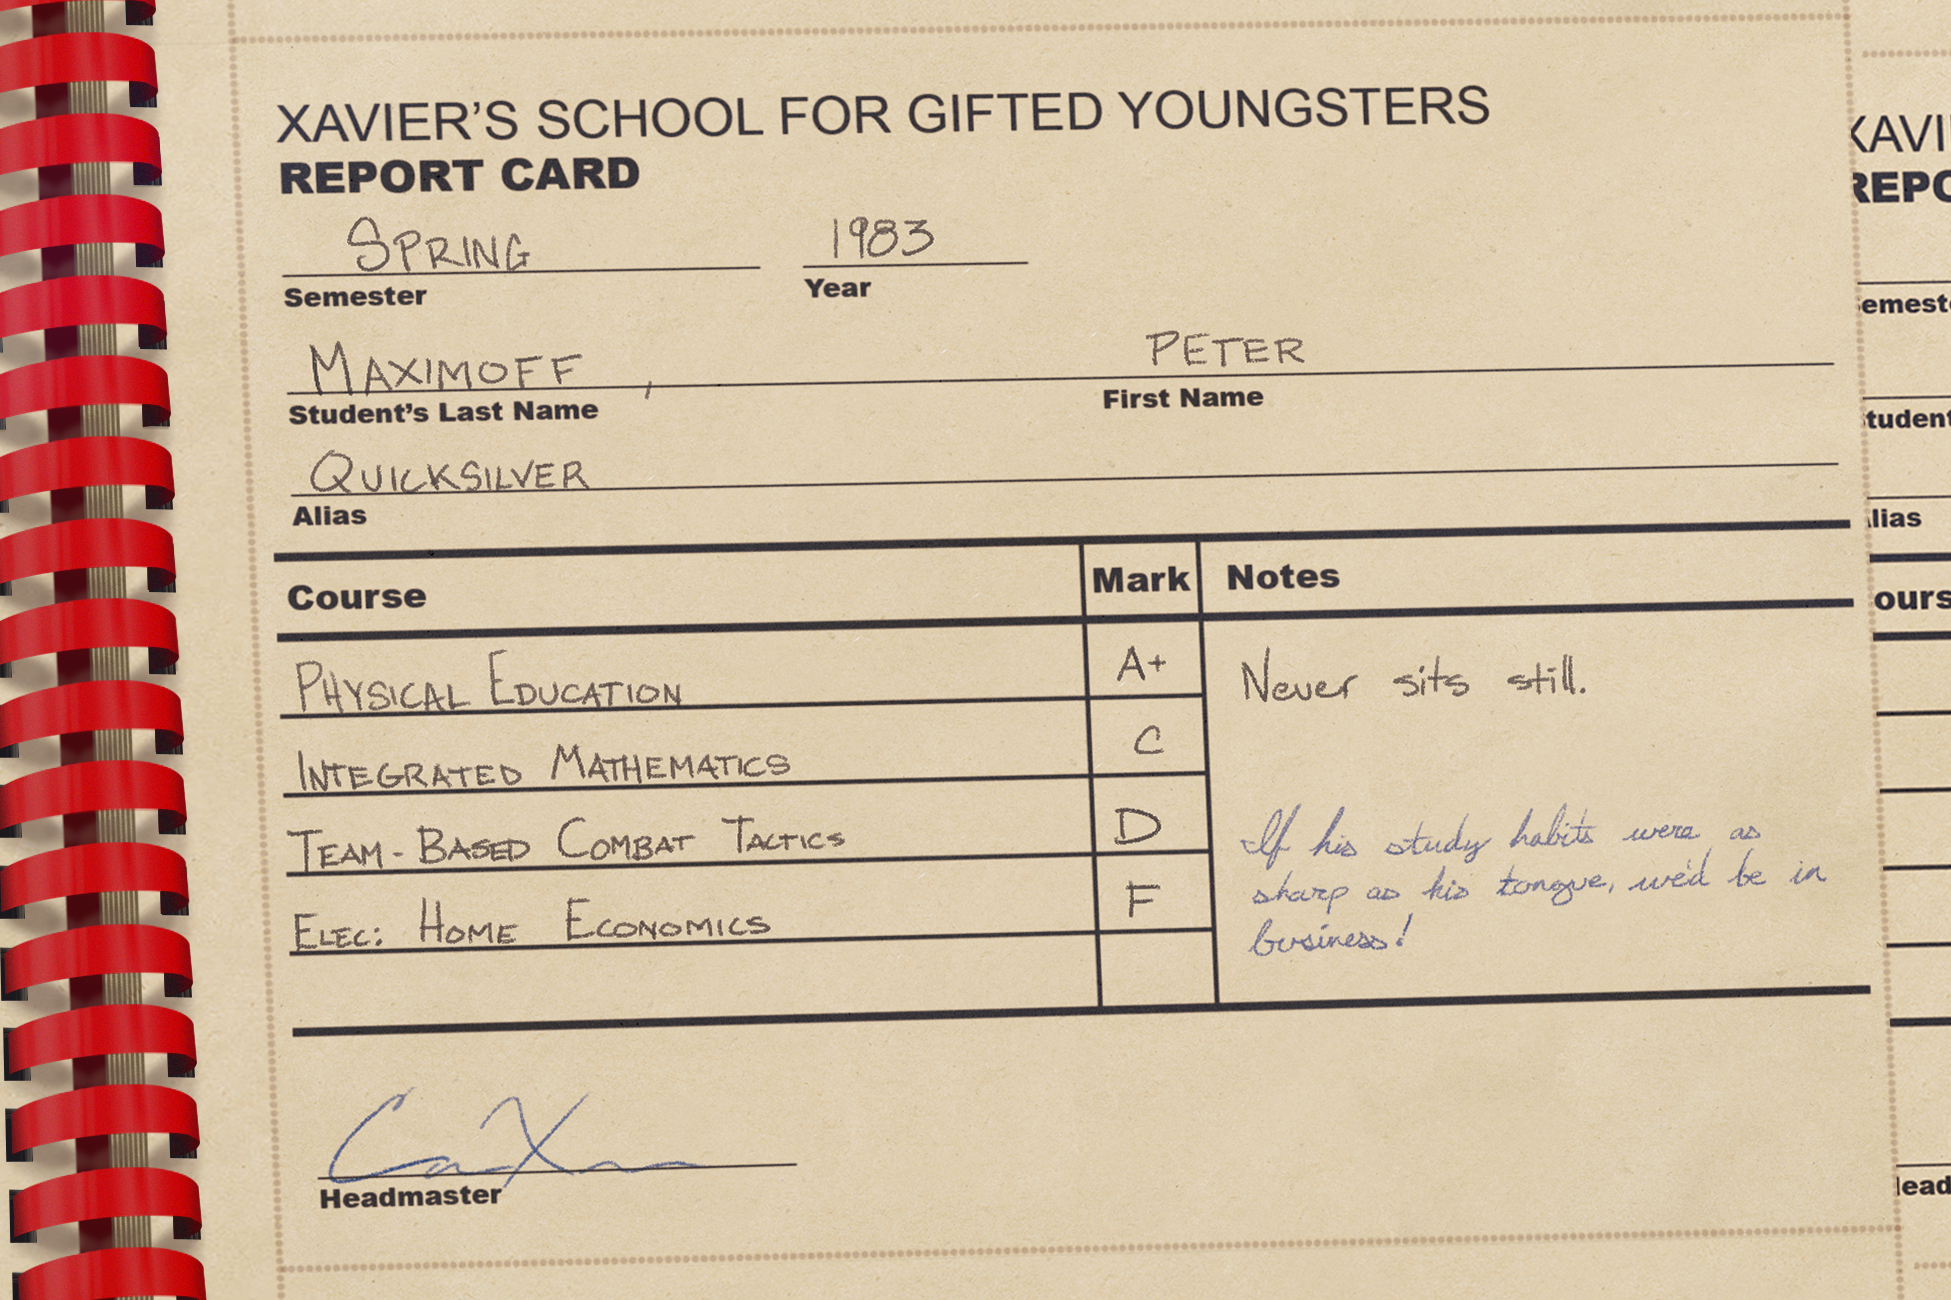 XAVIER'S SCHOOL FOR GIFTED YOUNGSTERS
REPORT CARD
SPRING 1983
Semester Year
MAXIMOFF, PETER
Student's Last Name First Name
QUICKSILVER
Alias
Course Mark Notes
PHYSICAL EDUCATION A+ Never sits still.
INTEGRATED MATHEMATICS C
TEAM-BASED COMBAT TACTICS D If his study habits were as
sharp as his tongue, we'd be in
ELEC: HOME ECONOMICS F
business!
Headmaster
XAVI
REPO
emest
tudent
lias
ours
lead